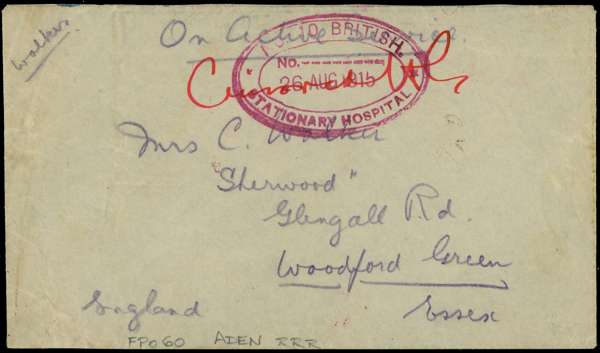 Walker
On Active Service.
No. 10 BRITISH.
NO.
26 AUG 1915
STATIONARY HOSPITAL
Mrs C. Walker
"Sherwood"
Glengall Rd.
Woodford Green
England
Essex
FPO 60 ADEN RRR